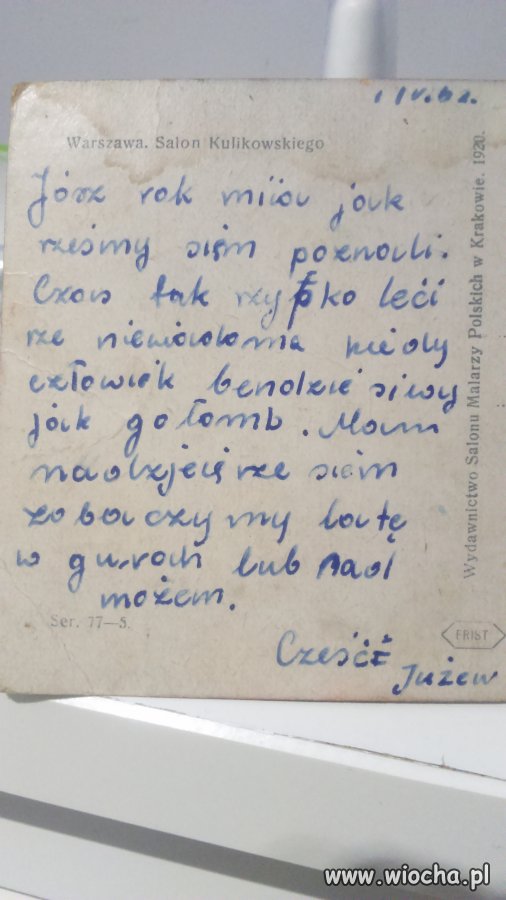 1 IV. 62.
Warszawa. Salon Kulikowskiego
Jósz rok miia jak
rześmy siem poznali.
Czas tak rzypko leći
rze niewiadoma kiedy
człowiek bendzie siwy
jak gołomb. Mam
nadzjeię rze siem
zobaczymy latę
w gurach lub nad
możem.
Ser. 77—5.
Cześćź
Jużew
Wydawnictwo Salonu Malarzy Polskich w Krakowie. 1920.
FRIST
www.wiocha.pl